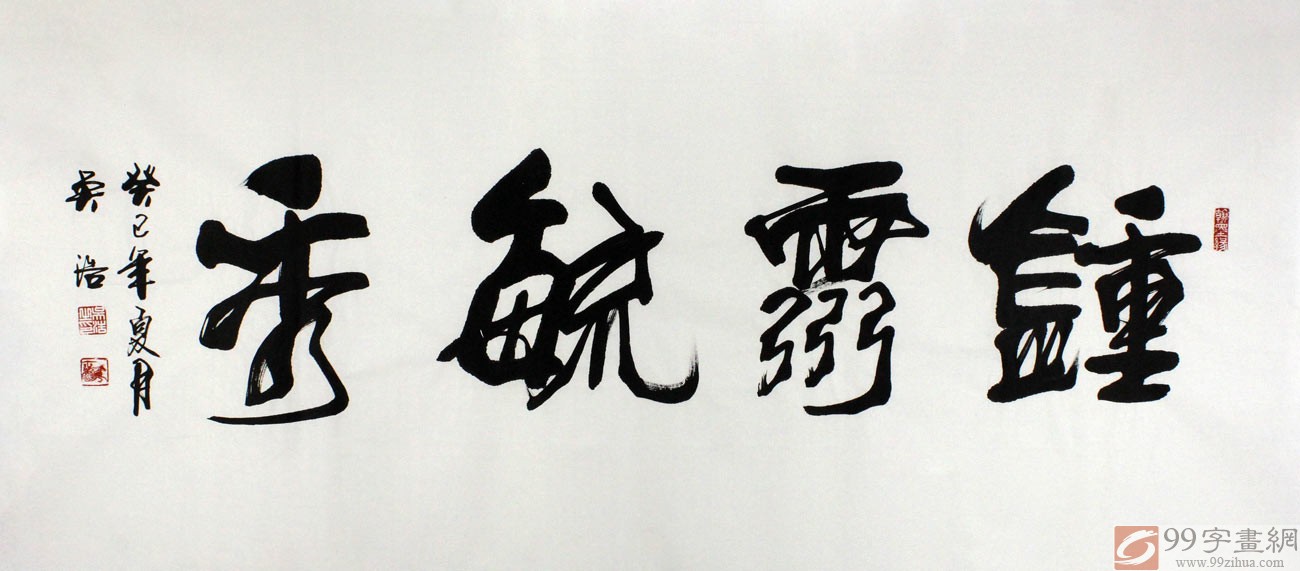 鍾靈毓秀
癸巳年夏月
吴浩
99字畫網
www.99zihua.com